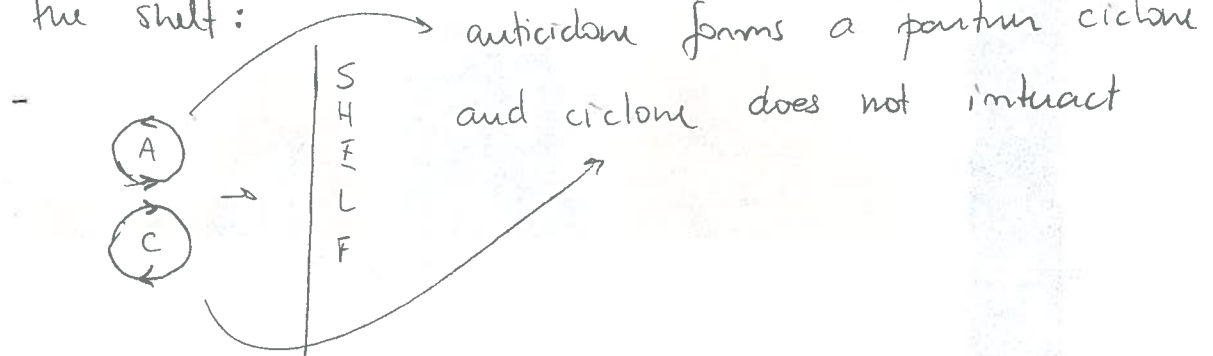 the shelf:
anticiclone forms a partner ciclone
and ciclone does not interact
-
A
C
S
H
E
L
F